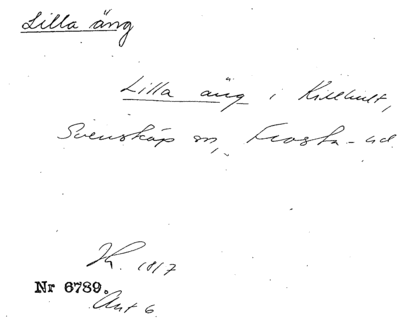 Lilla äng
Lilla äng i Killhult,
Svensköp sn, Frosta-hd
1817
Nr 6789.
Akt 6